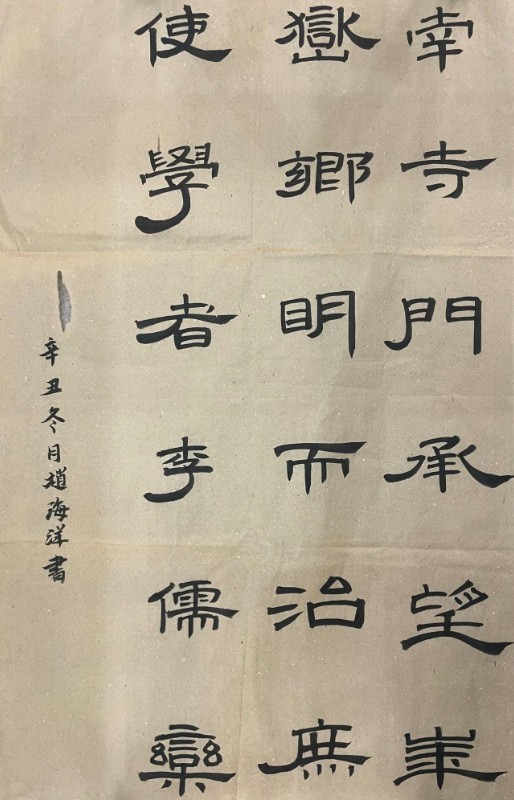 南寺門承望華
嶽鄉明而治庶
使學者李儒欒
辛丑冬月趙海洋書